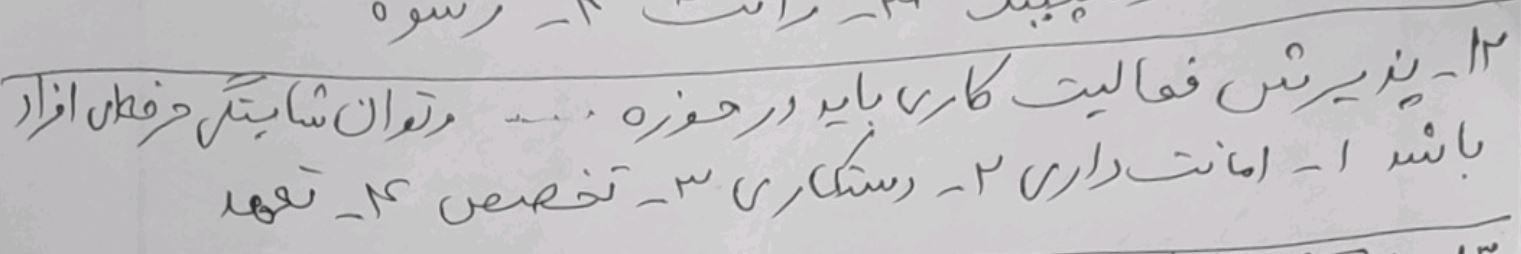 رشوه
۱۲- پذیرش فعالیت کاری باید در حوزه ..... و توان شایستگی حرفه‌ای افراد
باشد ۱- امانت داری ۲- درستکاری ۳- تخصص ۴- تعهد